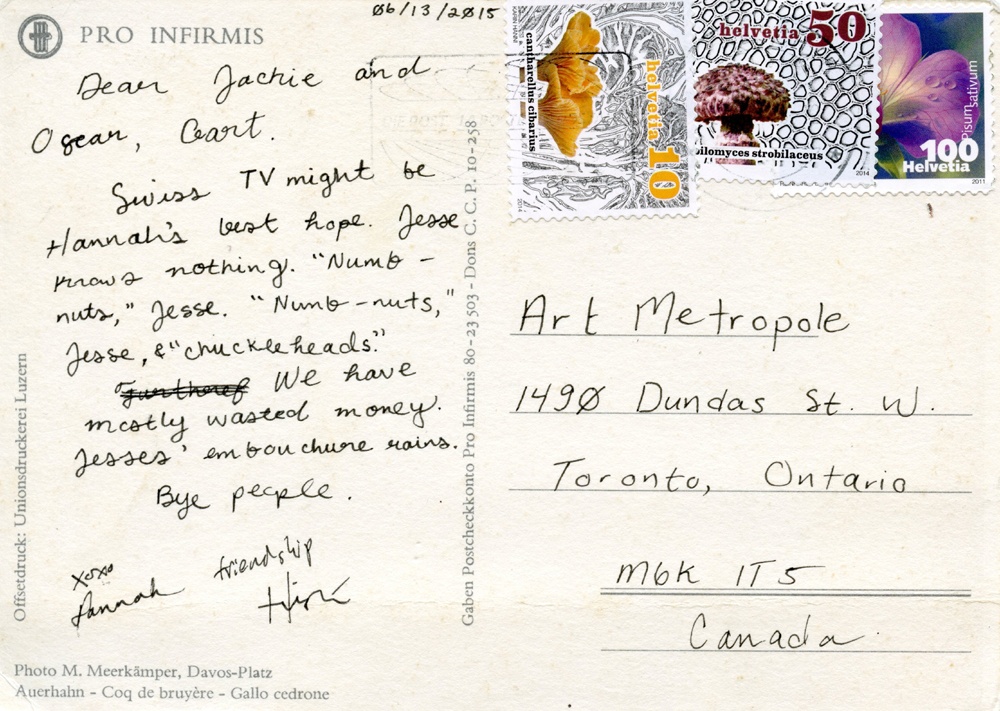 06/13/2015
PRO INFIRMIS
Dear Jackie and
Oscar, Gart,
Swiss TV might be
Hannah's best hope. Jesse
knows nothing. "Numb-
nuts," Jesse. "Numb-nuts,"
Jesse, & "chuckleheads."
We have
mostly wasted money.
Jesses' embouchure rains.
Bye people.
xoxo
Hannah
friendship
Offsetdruck: Unionsdruckerei Luzern
Photo M. Meerkämper, Davos-Platz
Auerhahn - Coq de bruyère - Gallo cedrone
Gaben Postcheckkonto Pro Infirmis 80-23 503 - Dons C. C. P. 10-258
cantharellus cibarius
helvetia 10
2014
helvetia 50
ilomyces strobilaceus
2014
Pisum sativum
100
Helvetia
2011
Art Metropole
1490 Dundas St. W.
Toronto, Ontario
M6K 1T5
Canada